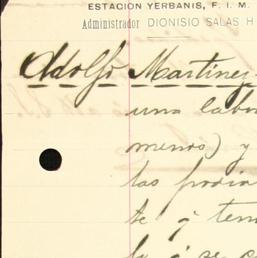 ESTACION YERBANIS, F. I. M.
Administrador DIONISIO SALAS H
Adolfo Martinez
una labo
menos) y
las podia
te q ten
la q se